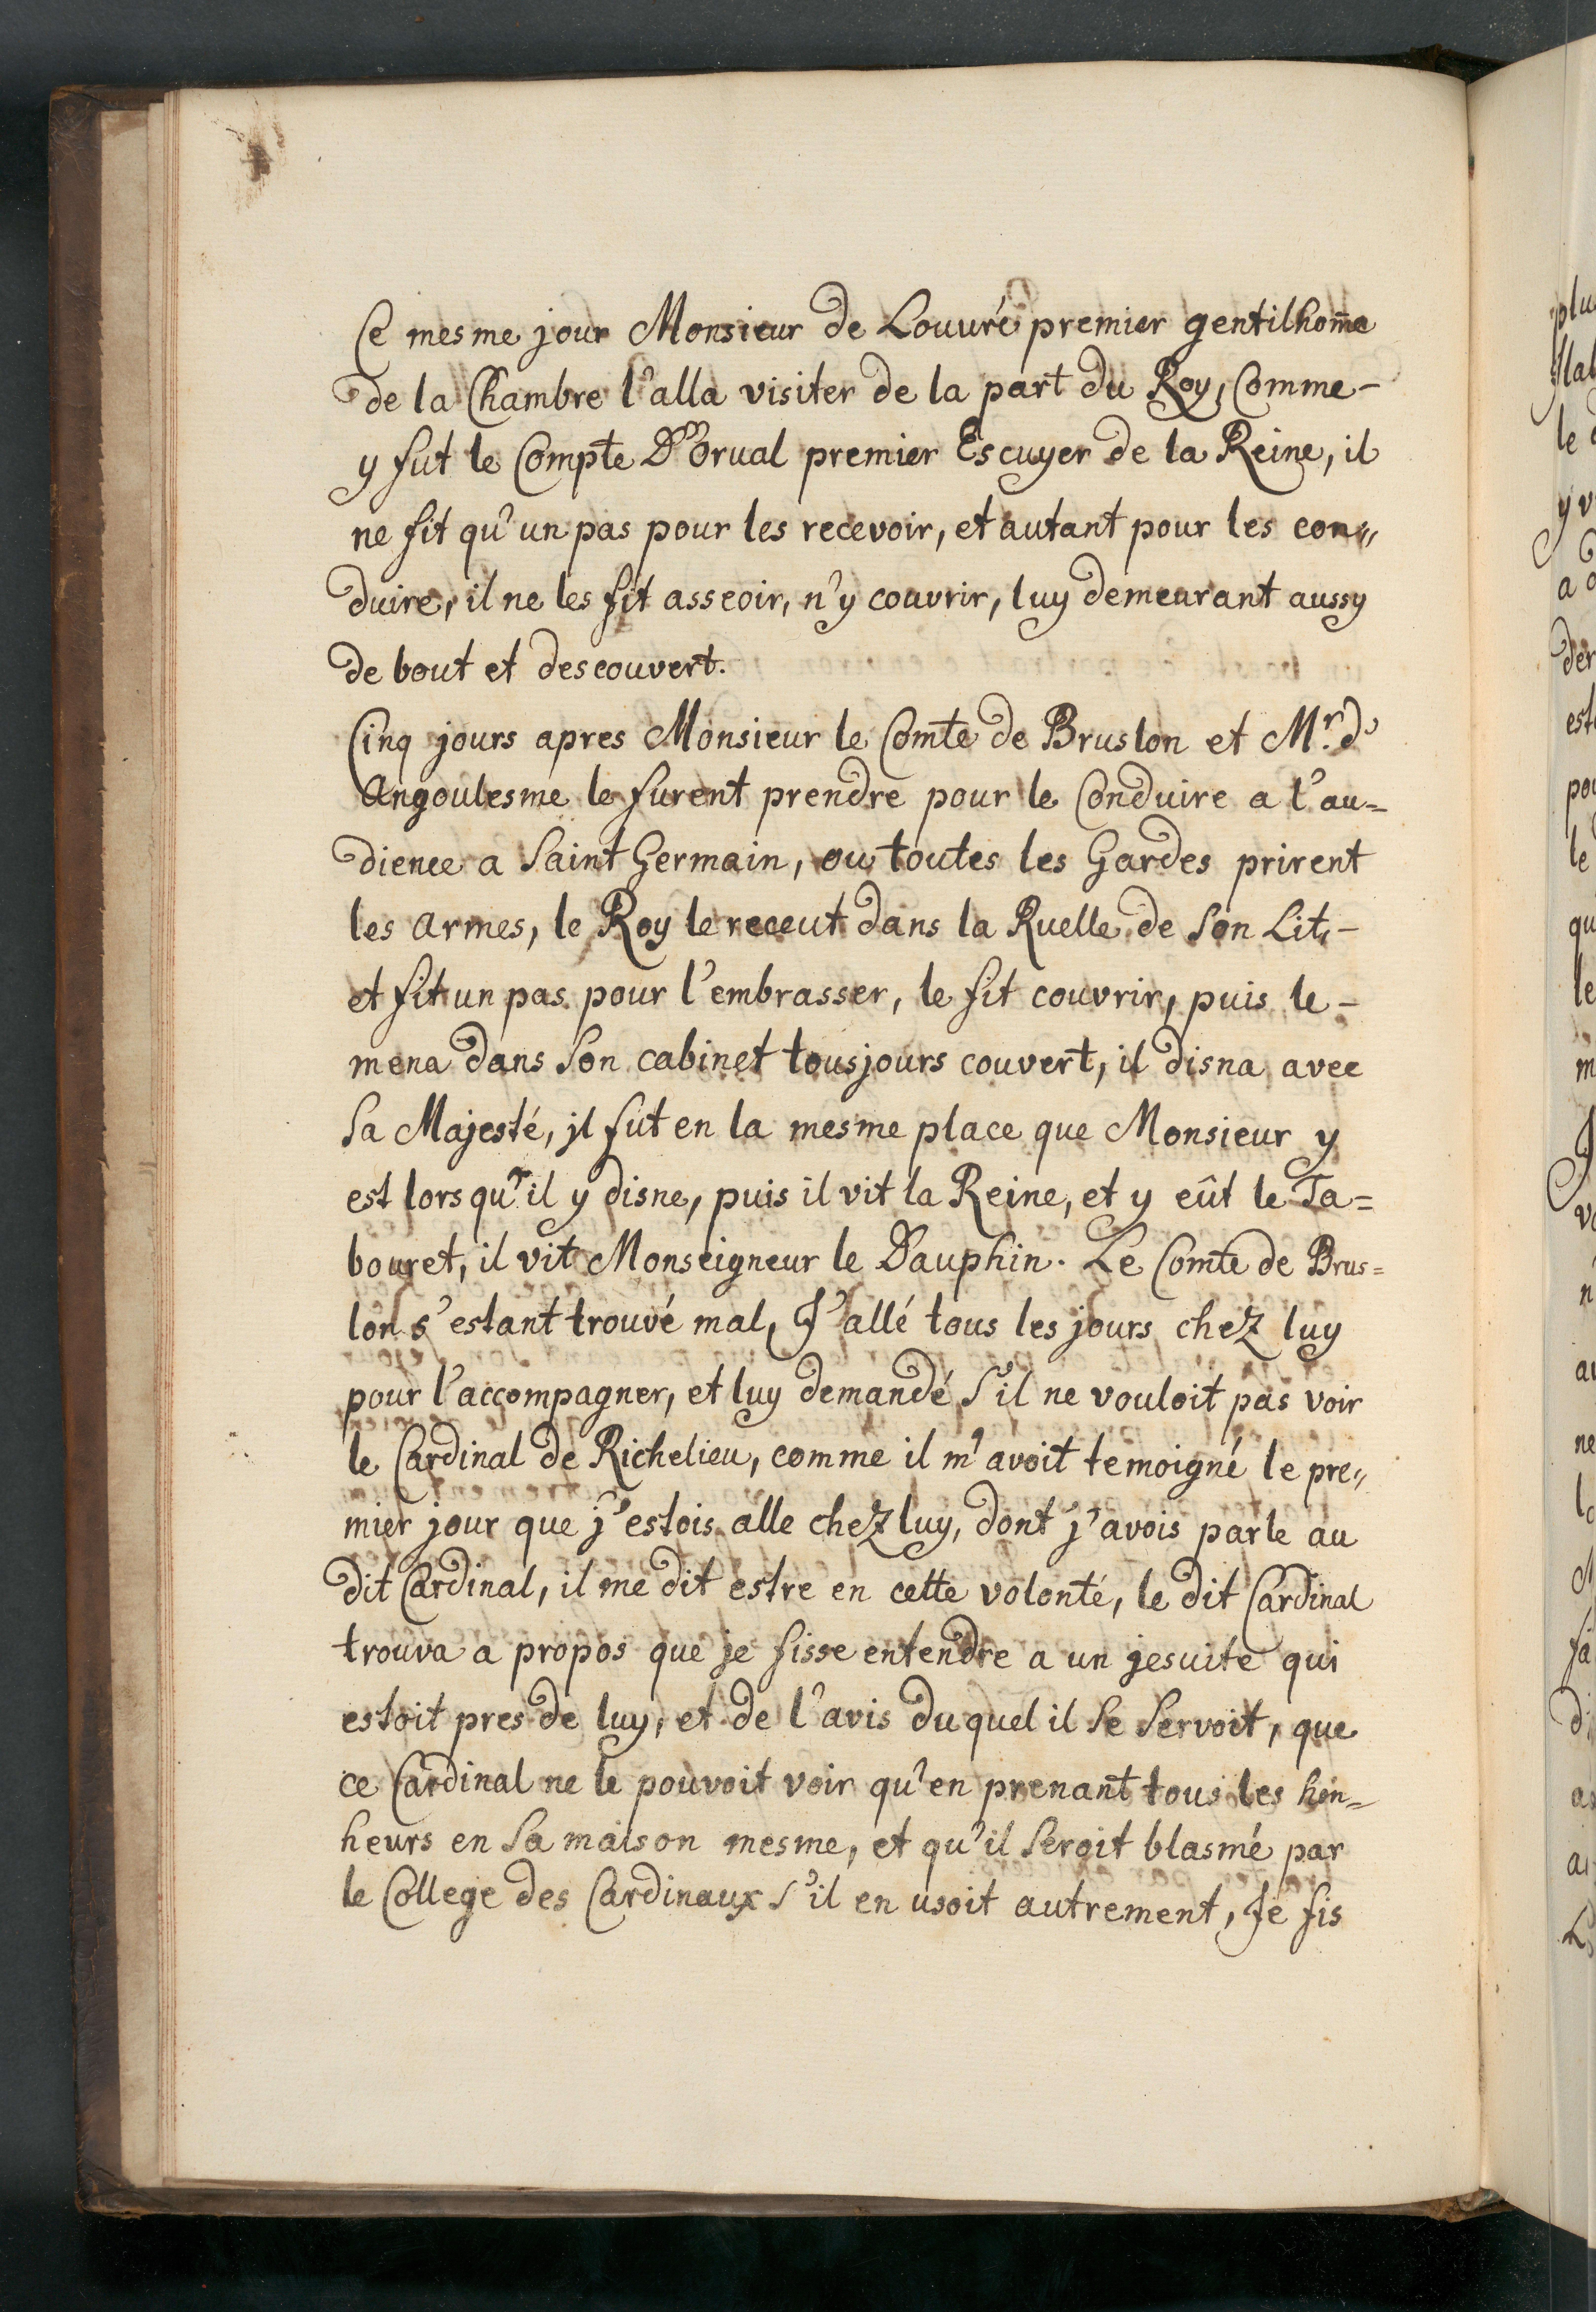 Ce mesme jour Monsieur de Louuré premier gentilhom̃e
de la Chambre l'alla visiter de la part du Roy, Comme-
y fut le Compte D'Orual premier Escuyer de la Reine, il
ne fit qu'un pas pour les recevoir, et autant pour les con„
duire, il ne les fit asseoir, n'y couvrir, luy demeurant aussy
de bout et descouvert.
Cinq jours apres Monsieur le Comte de Bruslon et M.r d'
Angoulesme le furent prendre pour le Conduire a l'au=
dience a Saint Germain, ou toutes les Gardes prirent
les armes, le Roy le receut dans la Ruelle de Son Lit,-
et fit un pas pour l'embrasser, le fit couvrir, puis le-
mena dans Son cabinet tousjours couvert, il disna avec
Sa Majesté, jl fut en la mesme place que Monsieur y
est lors qu'il y disne, puis il vit la Reine, et y eût le Ta=
bouret, il vit Monseigneur le Dauphin. Le Comte de Brus=
lon s'estant trouvé mal, J'allé tous les jours chez luy
pour l'accompagner, et luy demandé S'il ne vouloit pas voir
le Cardinal de Richelieu, comme il m'avoit temoigné le pre„
mier jour que j'estois alle chez luy, dont j'avois parle au
dit Cardinal, il me dit estre en cette volonté, le dit Cardinal
trouva a propos que je fisse entendre a un jesuite qui
estoit pres de luy, et de l'avis du quel il Se Servoit, que
ce Cardinal ne le pouvoit voir qu'en prenant tous les hon=
heurs en Sa maison mesme, et qu'il Seroit blasmé par
le College des Cardinaux S'il en usoit autrement, Je fis